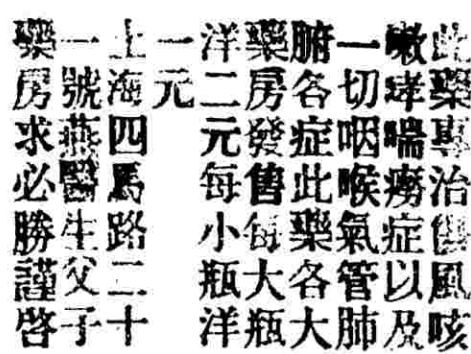 此藥專治傷風咳
嗽哮喘癆症以及
一切咽喉氣管肺
腑各症此藥各大
藥房發售每大瓶
洋二元每小瓶洋
一元
上海四馬路二十
一號燕醫生父子
藥房求必勝謹啓